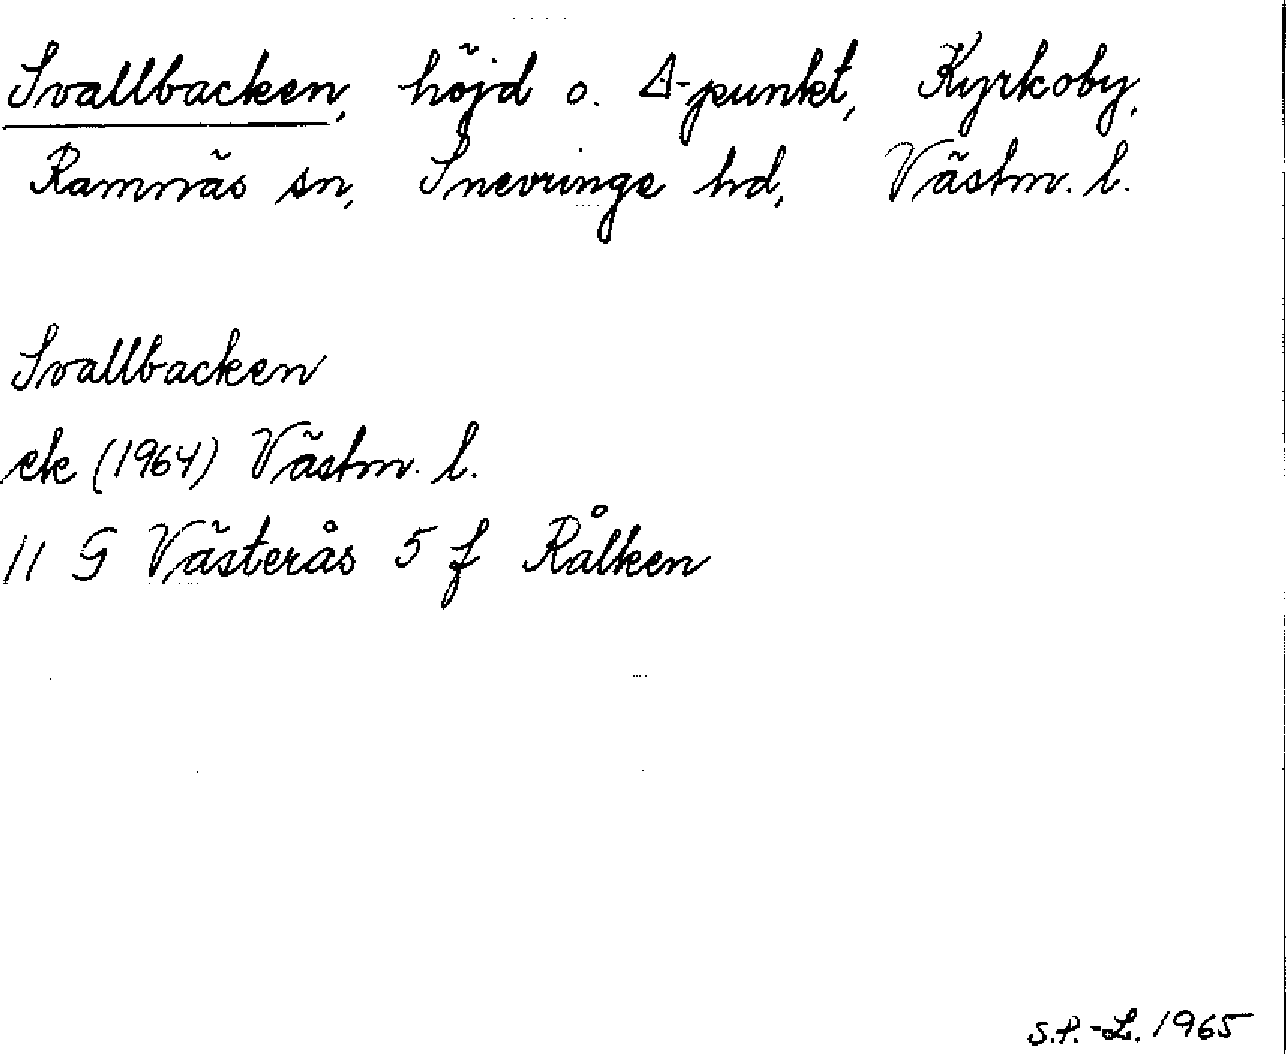 Svallbacken, höjd o. Δ-punkt, Kyrkoby,
Ramnäs sn, Snevringe hd, Västm. l.
Svallbacken
ek (1964) Västm. l.
11 G Västerås 5 f Rålken
S.P.-L. 1965